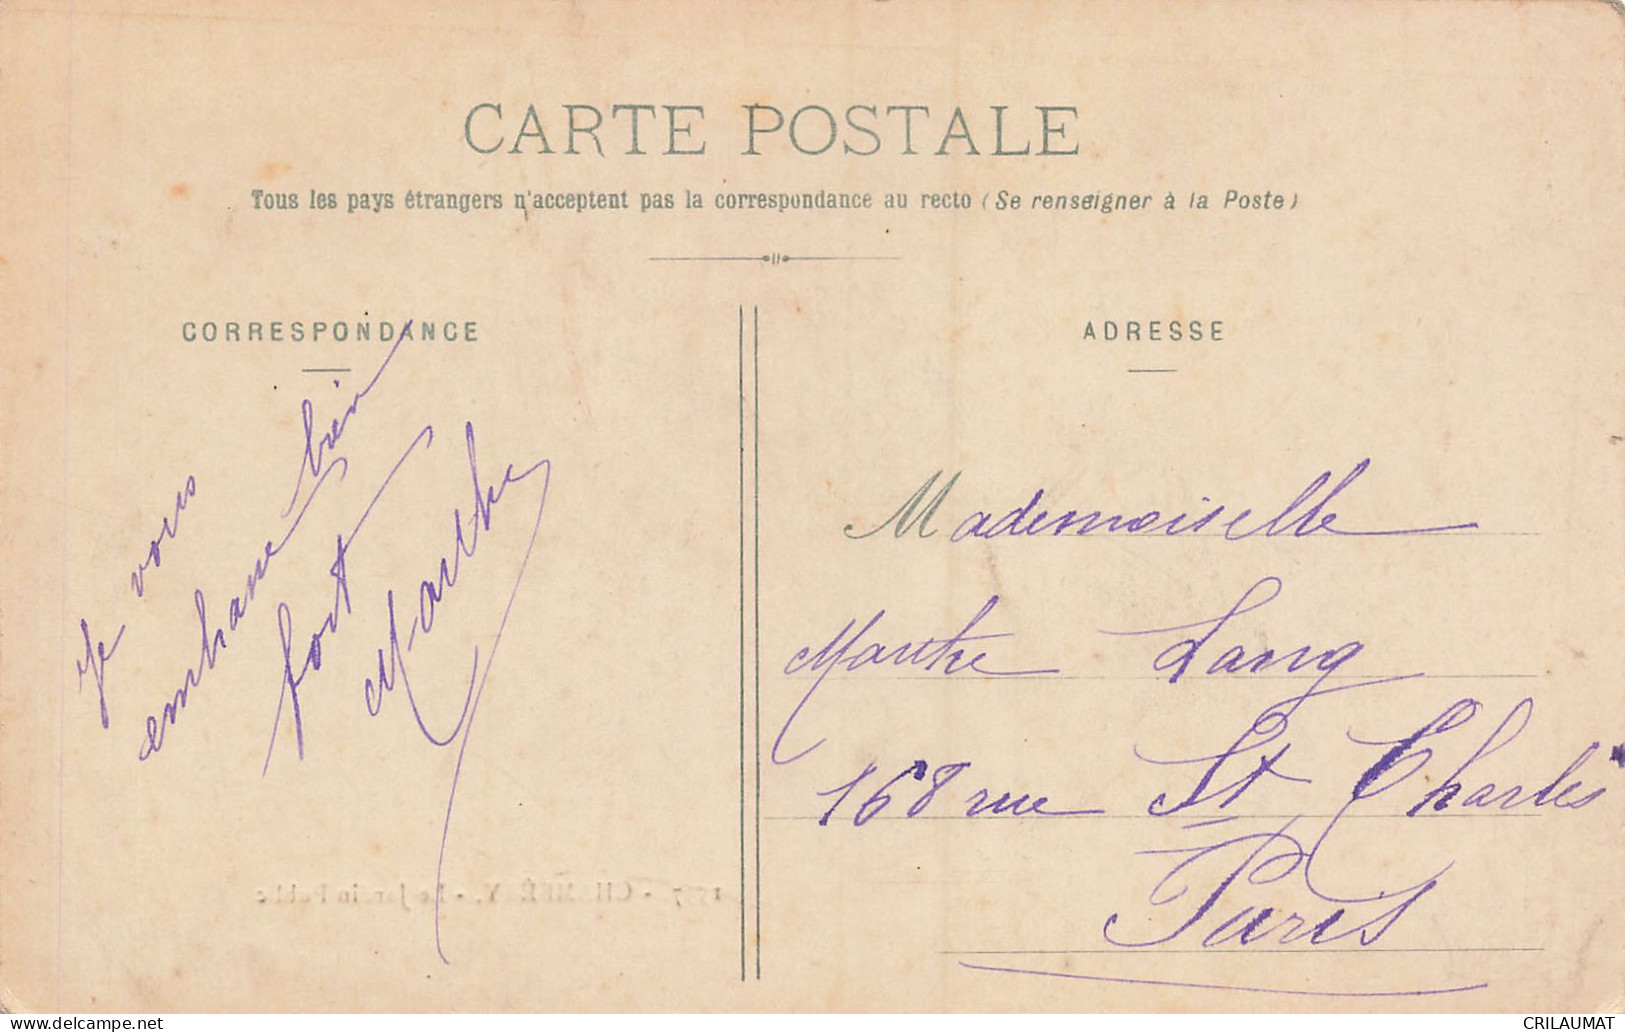 CARTE POSTALE
Tous les pays étrangers n'acceptent pas la correspondance au recto (Se renseigner à la Poste)
CORRESPONDANCE
Je vous
embrasse bien
fort
Marthe
ADRESSE
Mademoiselle
Marthe Lang
168 rue St Charles
Paris
CHAMBÉRY. - Le Jardin Public
delcampe.net
CRILAUMAT